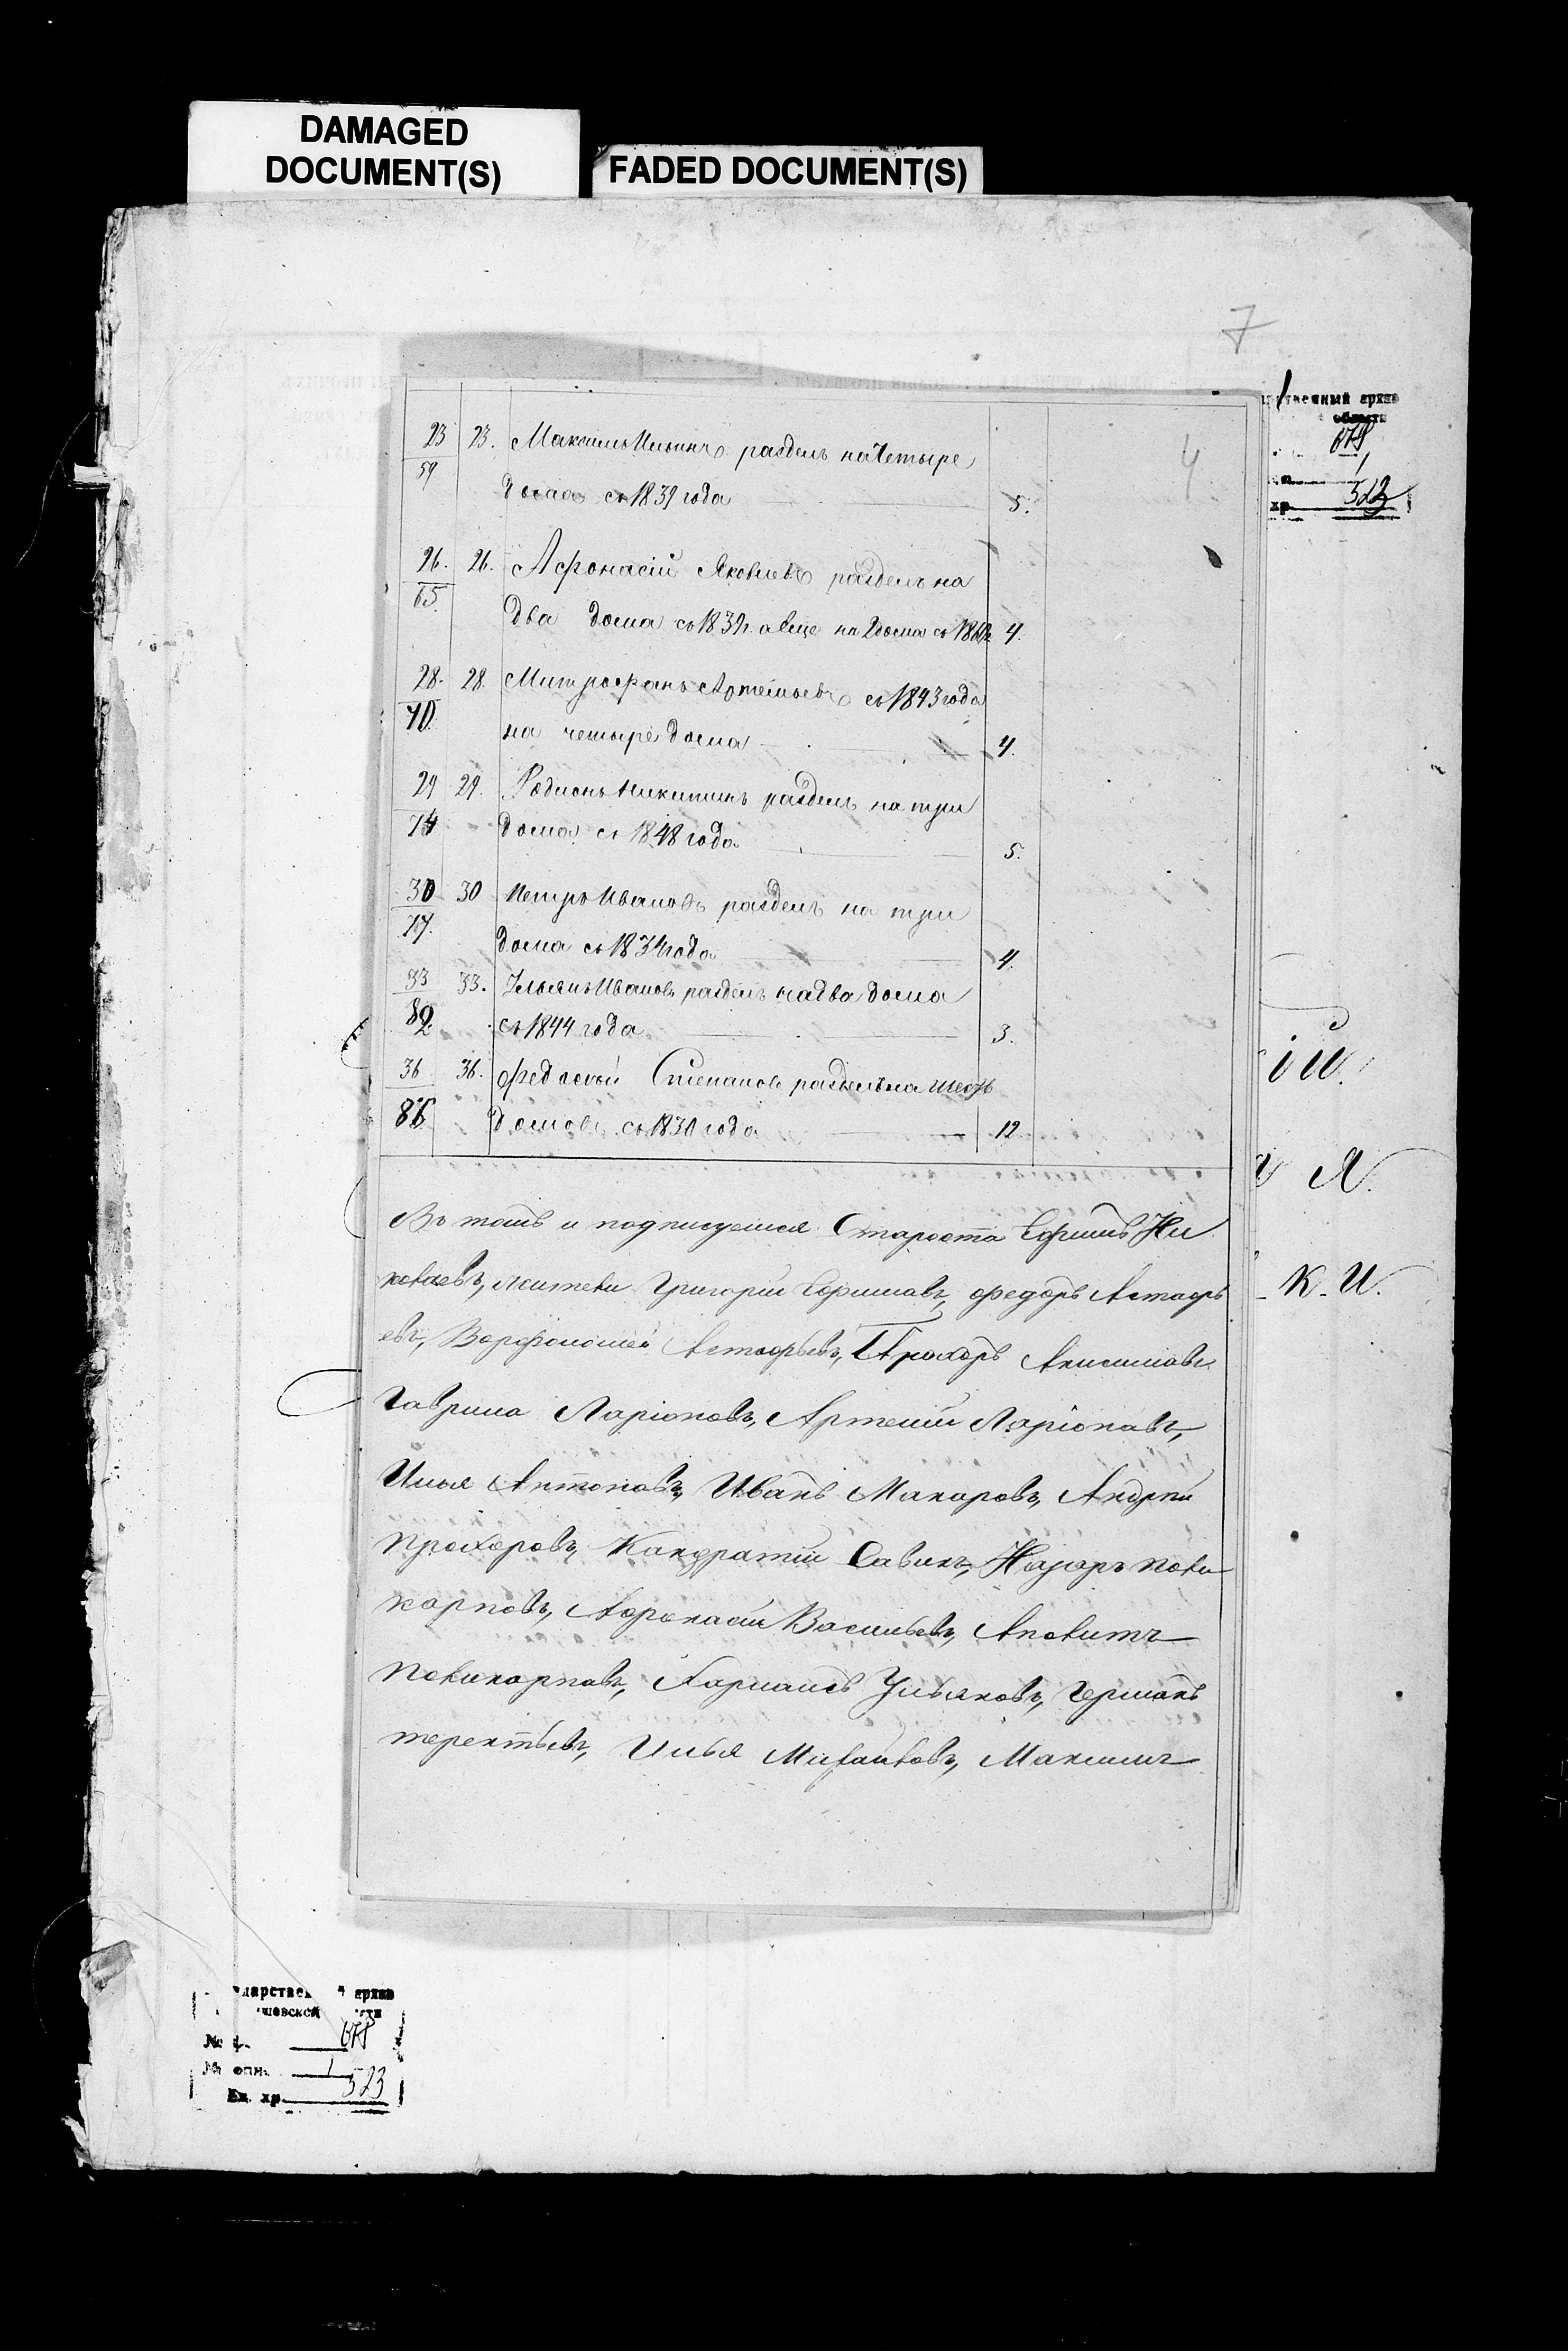 DAMAGED
DOCUMENT(S)
FADED DOCUMENT(S)
7
4
23 23. Максимъ Ильинъ разделъ на Четыре
59
дома съ 1839 года 5.
26. 26. Афонасій Яковлевъ разделъ на
65.
два дома съ 1839г. а еще на 2 дома съ 4.
28. 28. Митрофанъ Артемьевъ съ 1843 года
70.
на четыре дома 4.
29 29. Родионъ Никитинъ разделъ на три
74 дома съ 1848 года 5.
30 30 Петръ Ивановъ разделъ на три
77.
дома съ 1834 года 4.
33 33. Ульянъ Ивановъ разделъ на два дома
82 съ 1844 года 3.
36 36. Федосей Степановъ разделъ на шесть
86. домовъ съ 1830 года 12
Въ томъ и подписуемся Староста Ефимъ Ни
колаевъ, жители Григорій Ефимовъ, Федоръ Астафь
евъ, Ворфоломей Астафьевъ, Прохоръ Анисимовъ
Гаврила Ларіоновъ, Артемій Ларіоновъ,
Илья Антоновъ, Иванъ Макаровъ, Андрей
Прохоровъ, Кандратій Савинъ, Назаръ Поли
карповъ, Афонасій Васильевъ, Аполитъ
Поликарповъ, Харламъ Ульяновъ, Германъ
терентьевъ, Илья Михайловъ, Максимъ
ственный архив
области
678
1
хр. 523
ій.
Я.
к. и.
дарстве архив
шовской сти
№ ф. 678
№ опи. 1
Ед. хр. 523